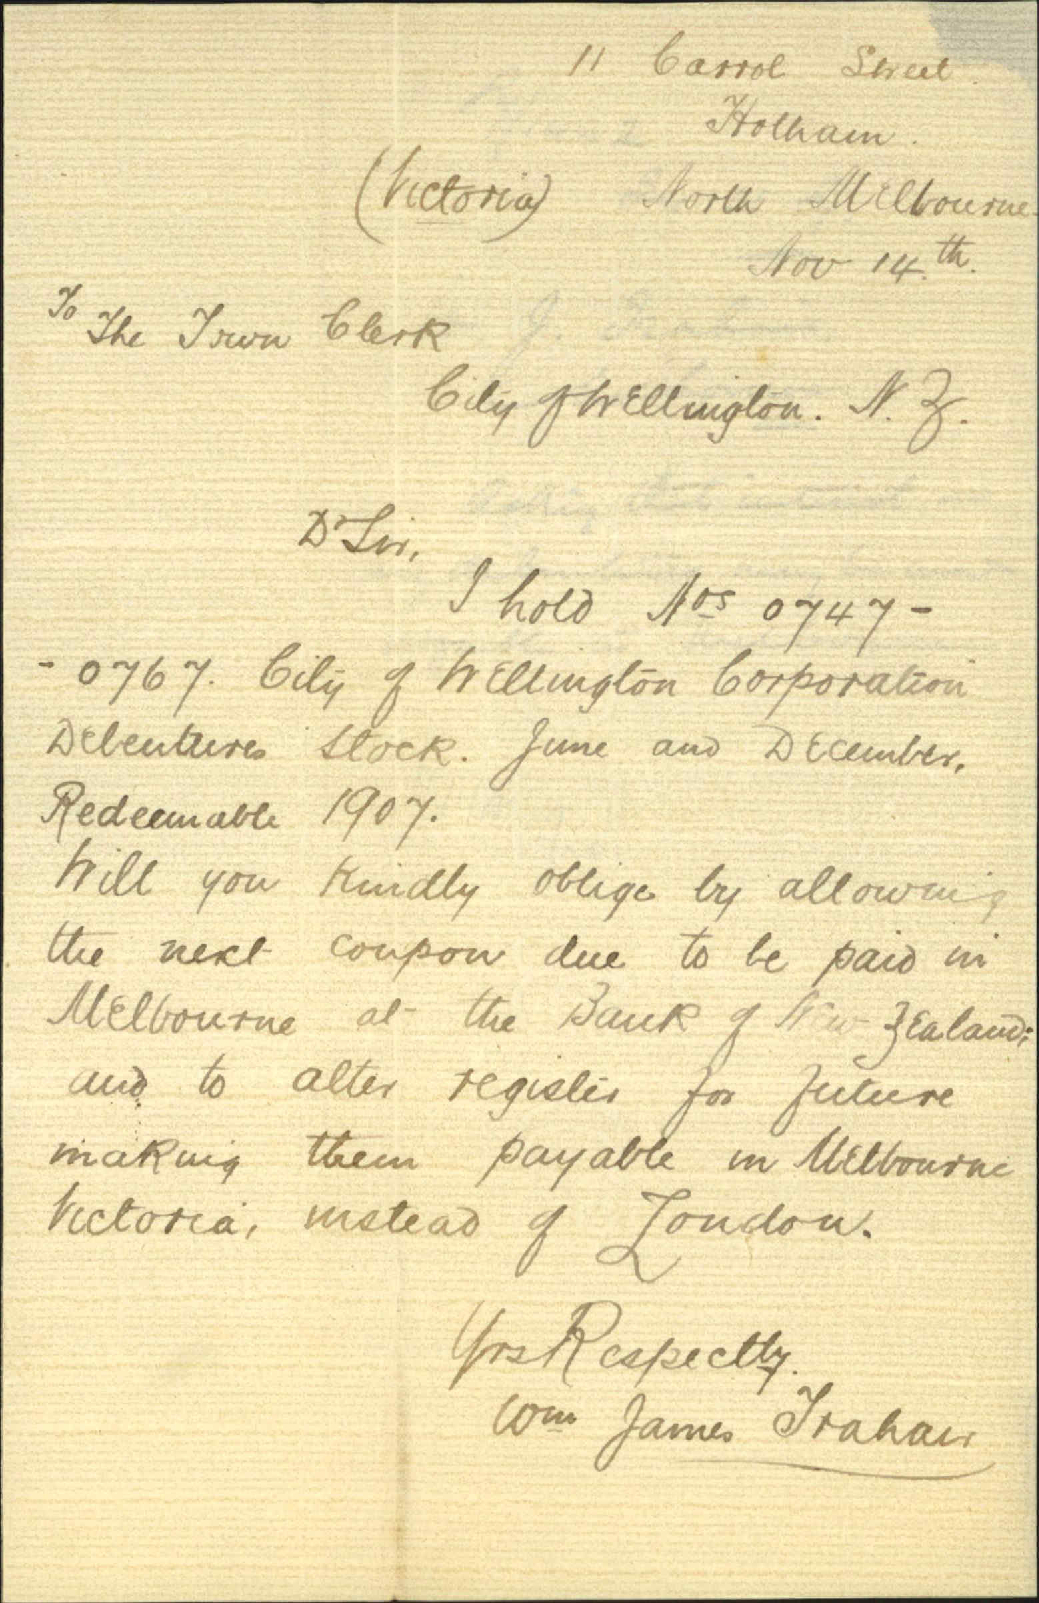 11 Carrol Street
Hotham.
(Victoria) North Melbourne
Nov 14th.
To The Town Clerk
City of Wellington. N.Z.
Dr Sir,
I hold Nos 0747-
- 0767. City of Wellington Corporation
Debentures Stock. June and December.
Redeemable 1907.
Will you kindly oblige by allowing
the next coupon due to be paid in
Melbourne at the Bank of New Zealand;
and to alter register for future
making them payable in Melbourne
Victoria, instead of London.
Yrs Respectly.
Wm James Trahair